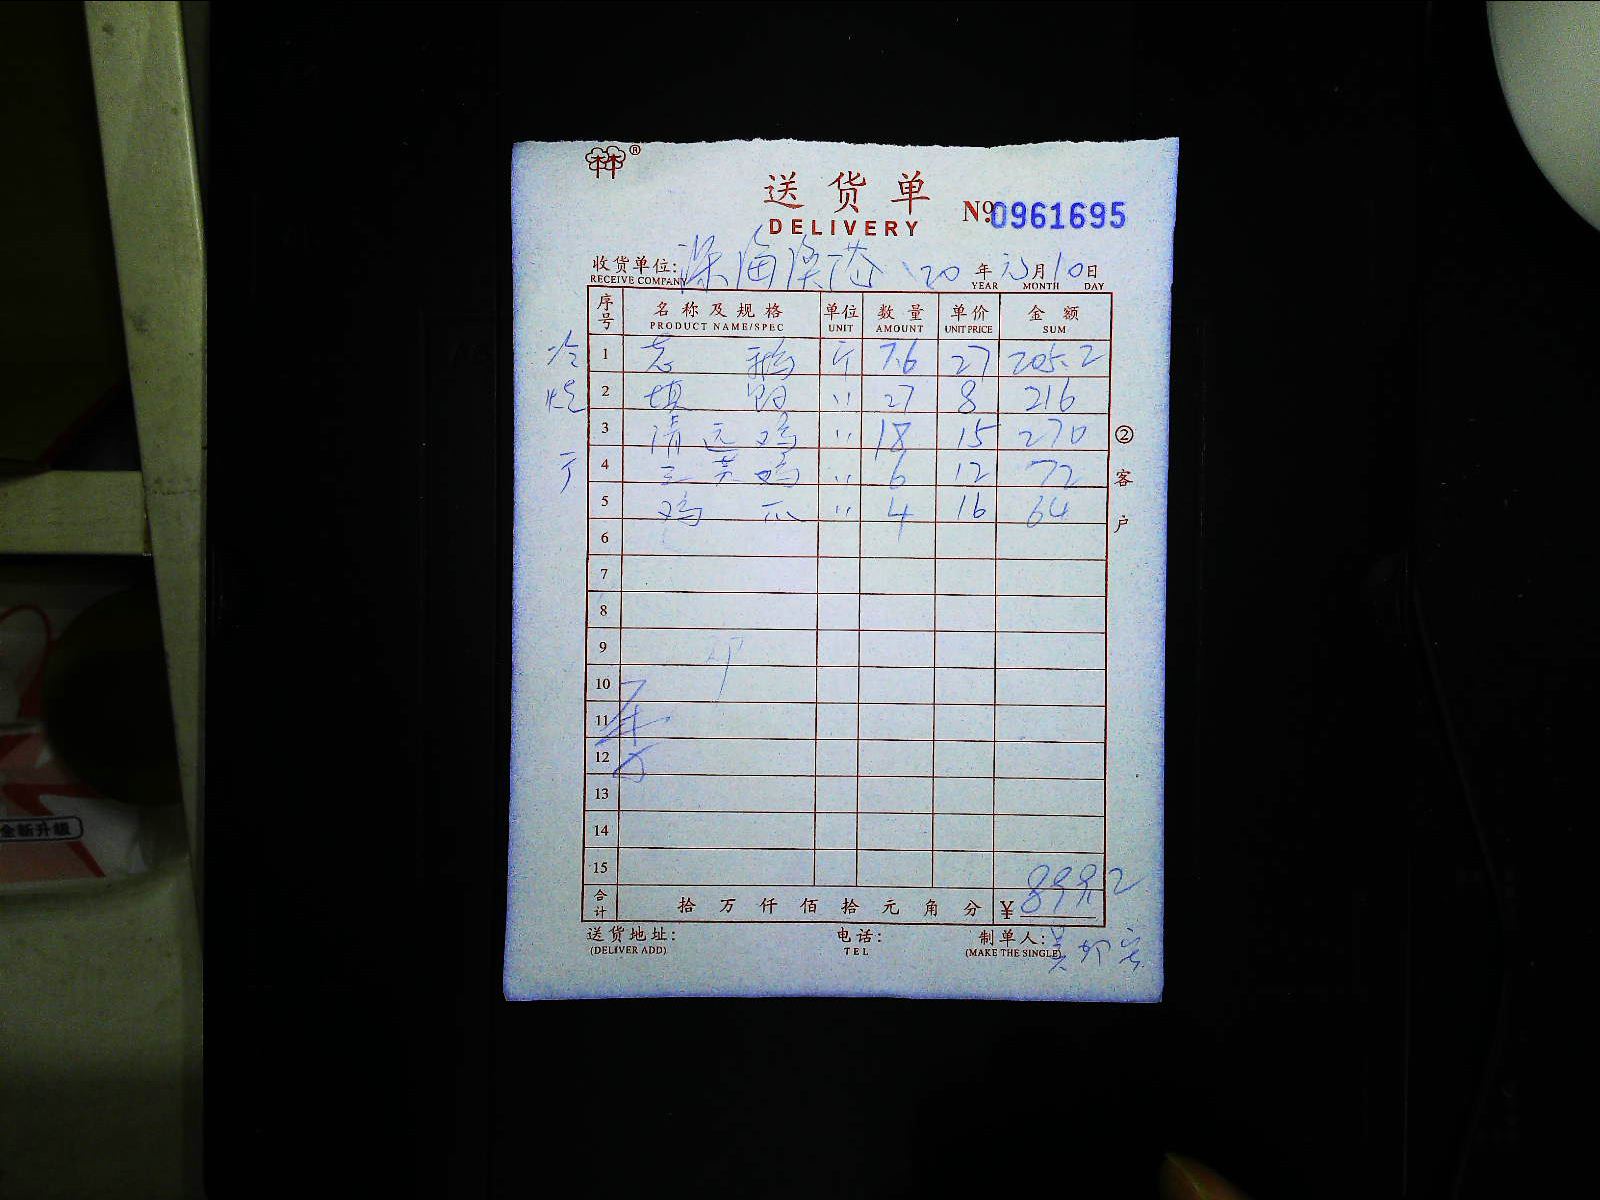 林®
送货单
DELIVERY
№0961695
收货单位: 深海渔港 20 年 月 10 日
RECEIVE COMPANY YEAR MONTH DAY
序号 名称及规格 单位 数量 单价 金额
PRODUCT NAME/SPEC UNIT AMOUNT UNIT PRICE SUM
冷 1 老鹅 斤 7.6 27 205.2
烧 2 填鸭 〃 27 8 216
3 清远鸡 〃 18 15 270 ②
4 三黄鸡 〃 6 12 72 客
5 鸡爪 〃 4 16 64 户
6
7
8
9
10
11
12
13
14
15
合计 拾 万 仟 佰 拾 元 角 分 ¥
送货地址: 电话: 制单人:
(DELIVER ADD) TEL (MAKE THE SINGLE)
全新升级